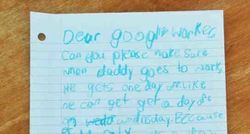 Dear google worker,
Can you please make sure
when daddy goes to work,
He gets one day off. like
he can get get a day off
on wednesday. Because